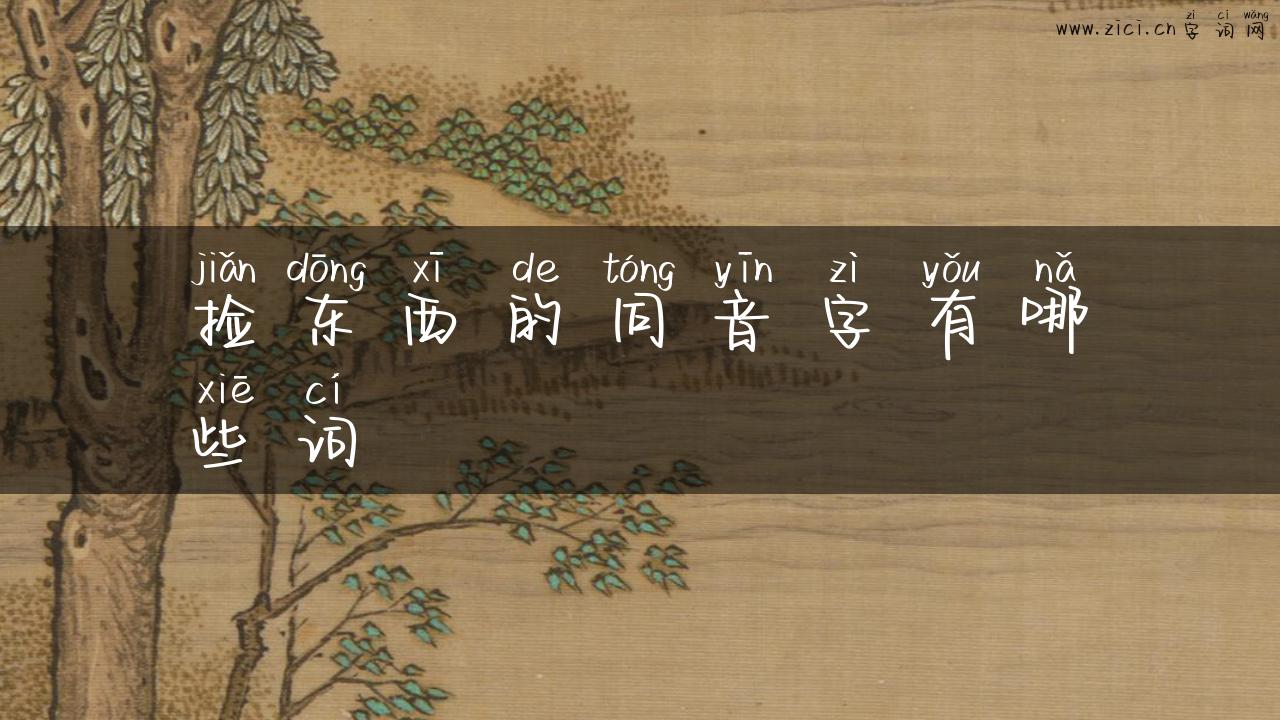 zì cí wǎng
www.zici.cn 字词网
jiǎn dōng xī de tóng yīn zì yǒu nǎ
捡东西的同音字有哪
xiē cí
些词